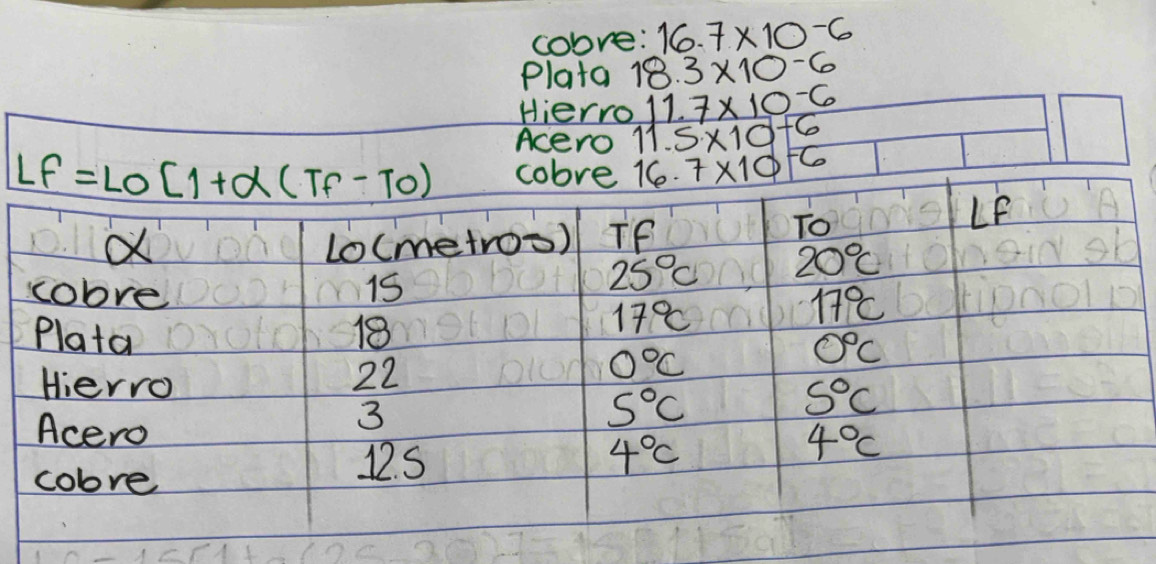 cobre: 16.7×10-6
Plata 18.3×10-6
Hierro 11.7×10-6
Acero 11.5×10-6
Lf =Lo [1+α(Tf-To) cobre 16.7×10-6
α Lo(metros) Tf To Lf
cobre 15 25°C 20°C
Plata 18 17°C 17°C
Hierro 22 0°C 0°C
Acero 3 5°C 5°C
cobre 12.5 4°C 4°C